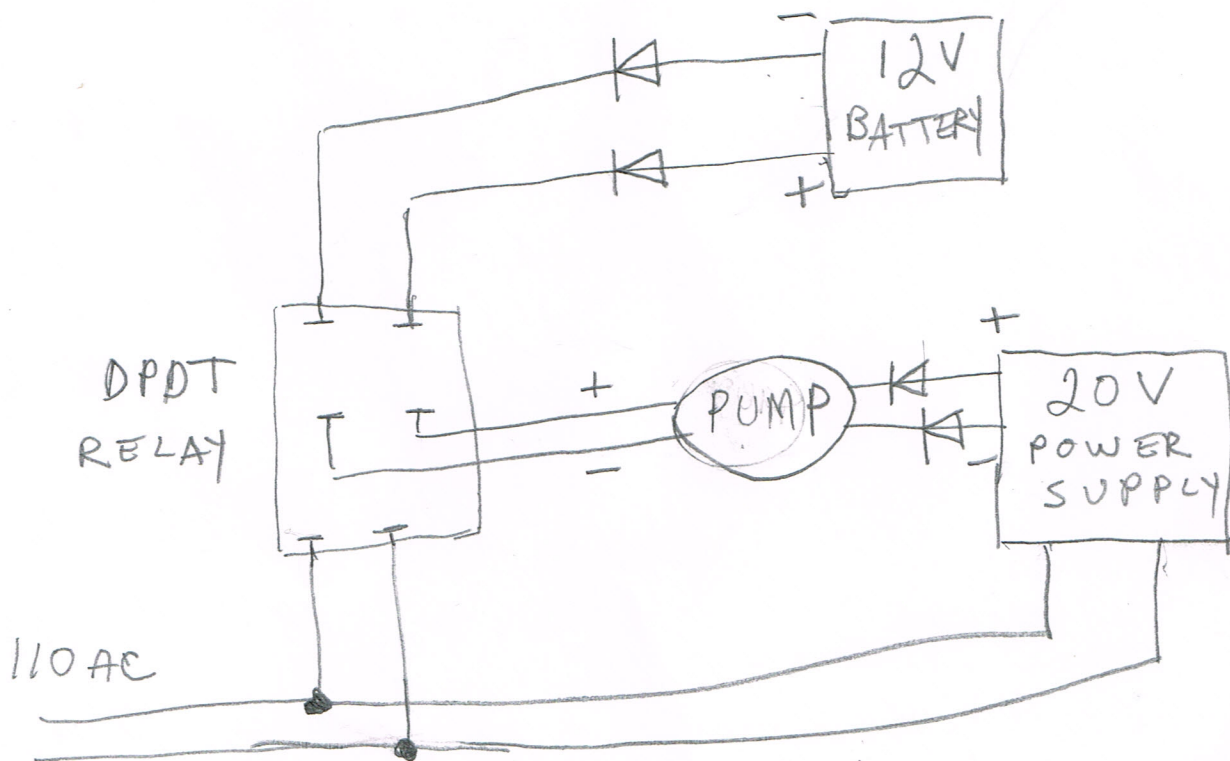 -
12V
BATTERY
+
DPDT
RELAY
+
-
PUMP
+
-
20V
POWER
SUPPLY
110 AC